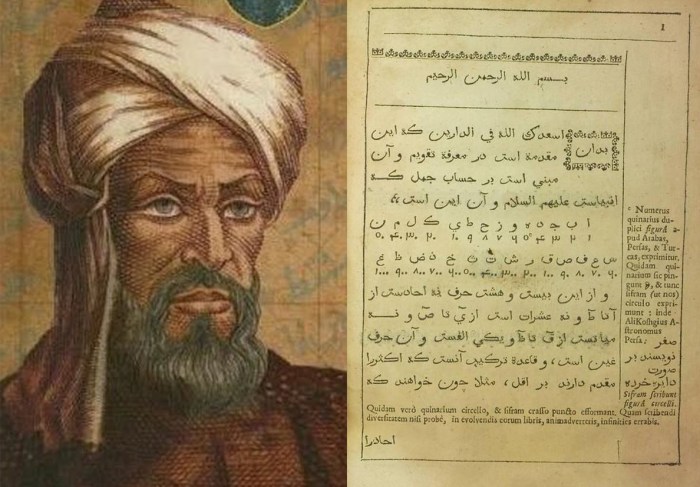 1
بسم الله الرحمن الرحيم
بدان اسعدك الله في الدارين كه اين
مقدمة است در معرفة تقويم و آن
مبني است بر حساب جمل كه
عليهم السلام و آن اين است
ا ب ج د ه و ز ح ط ي ك ل م ن
س ع ف ص ق ر ش ت ث خ ذ ض ظ غ
و از اين بيست و هشت حرف نه احادست از
آ تا ط و نه عشرات است از ي تا ص و نه
مياتست از ق تا ظ و يكي الفست و آن حرف
غين است، و قاعدة تركيب آنست كه اكثررا
مقدم دارند بر اقل، مثلا چون خواهند كه
Numerus
quinarius du-
plici figurâ a-
pud Arabas,
Persas, & Tur-
cas, exprimitur.
Quidam qui-
narium sic pin-
gunt & tunc
sifram (ut nos)
circulo expri-
munt: inde
AliKoshgius A-
stronomus
Persa:
صفر
نويسند بر
صورت
دايره خرده
Sifram scribunt
figurâ circelli.
Quidam verò quinarium circello, & sifram crasso puncto efformant. Quam scribendi
diversitatem nisi probè, in evolvendis eorum libris, animadverteris, infinities errabis.
احادرا